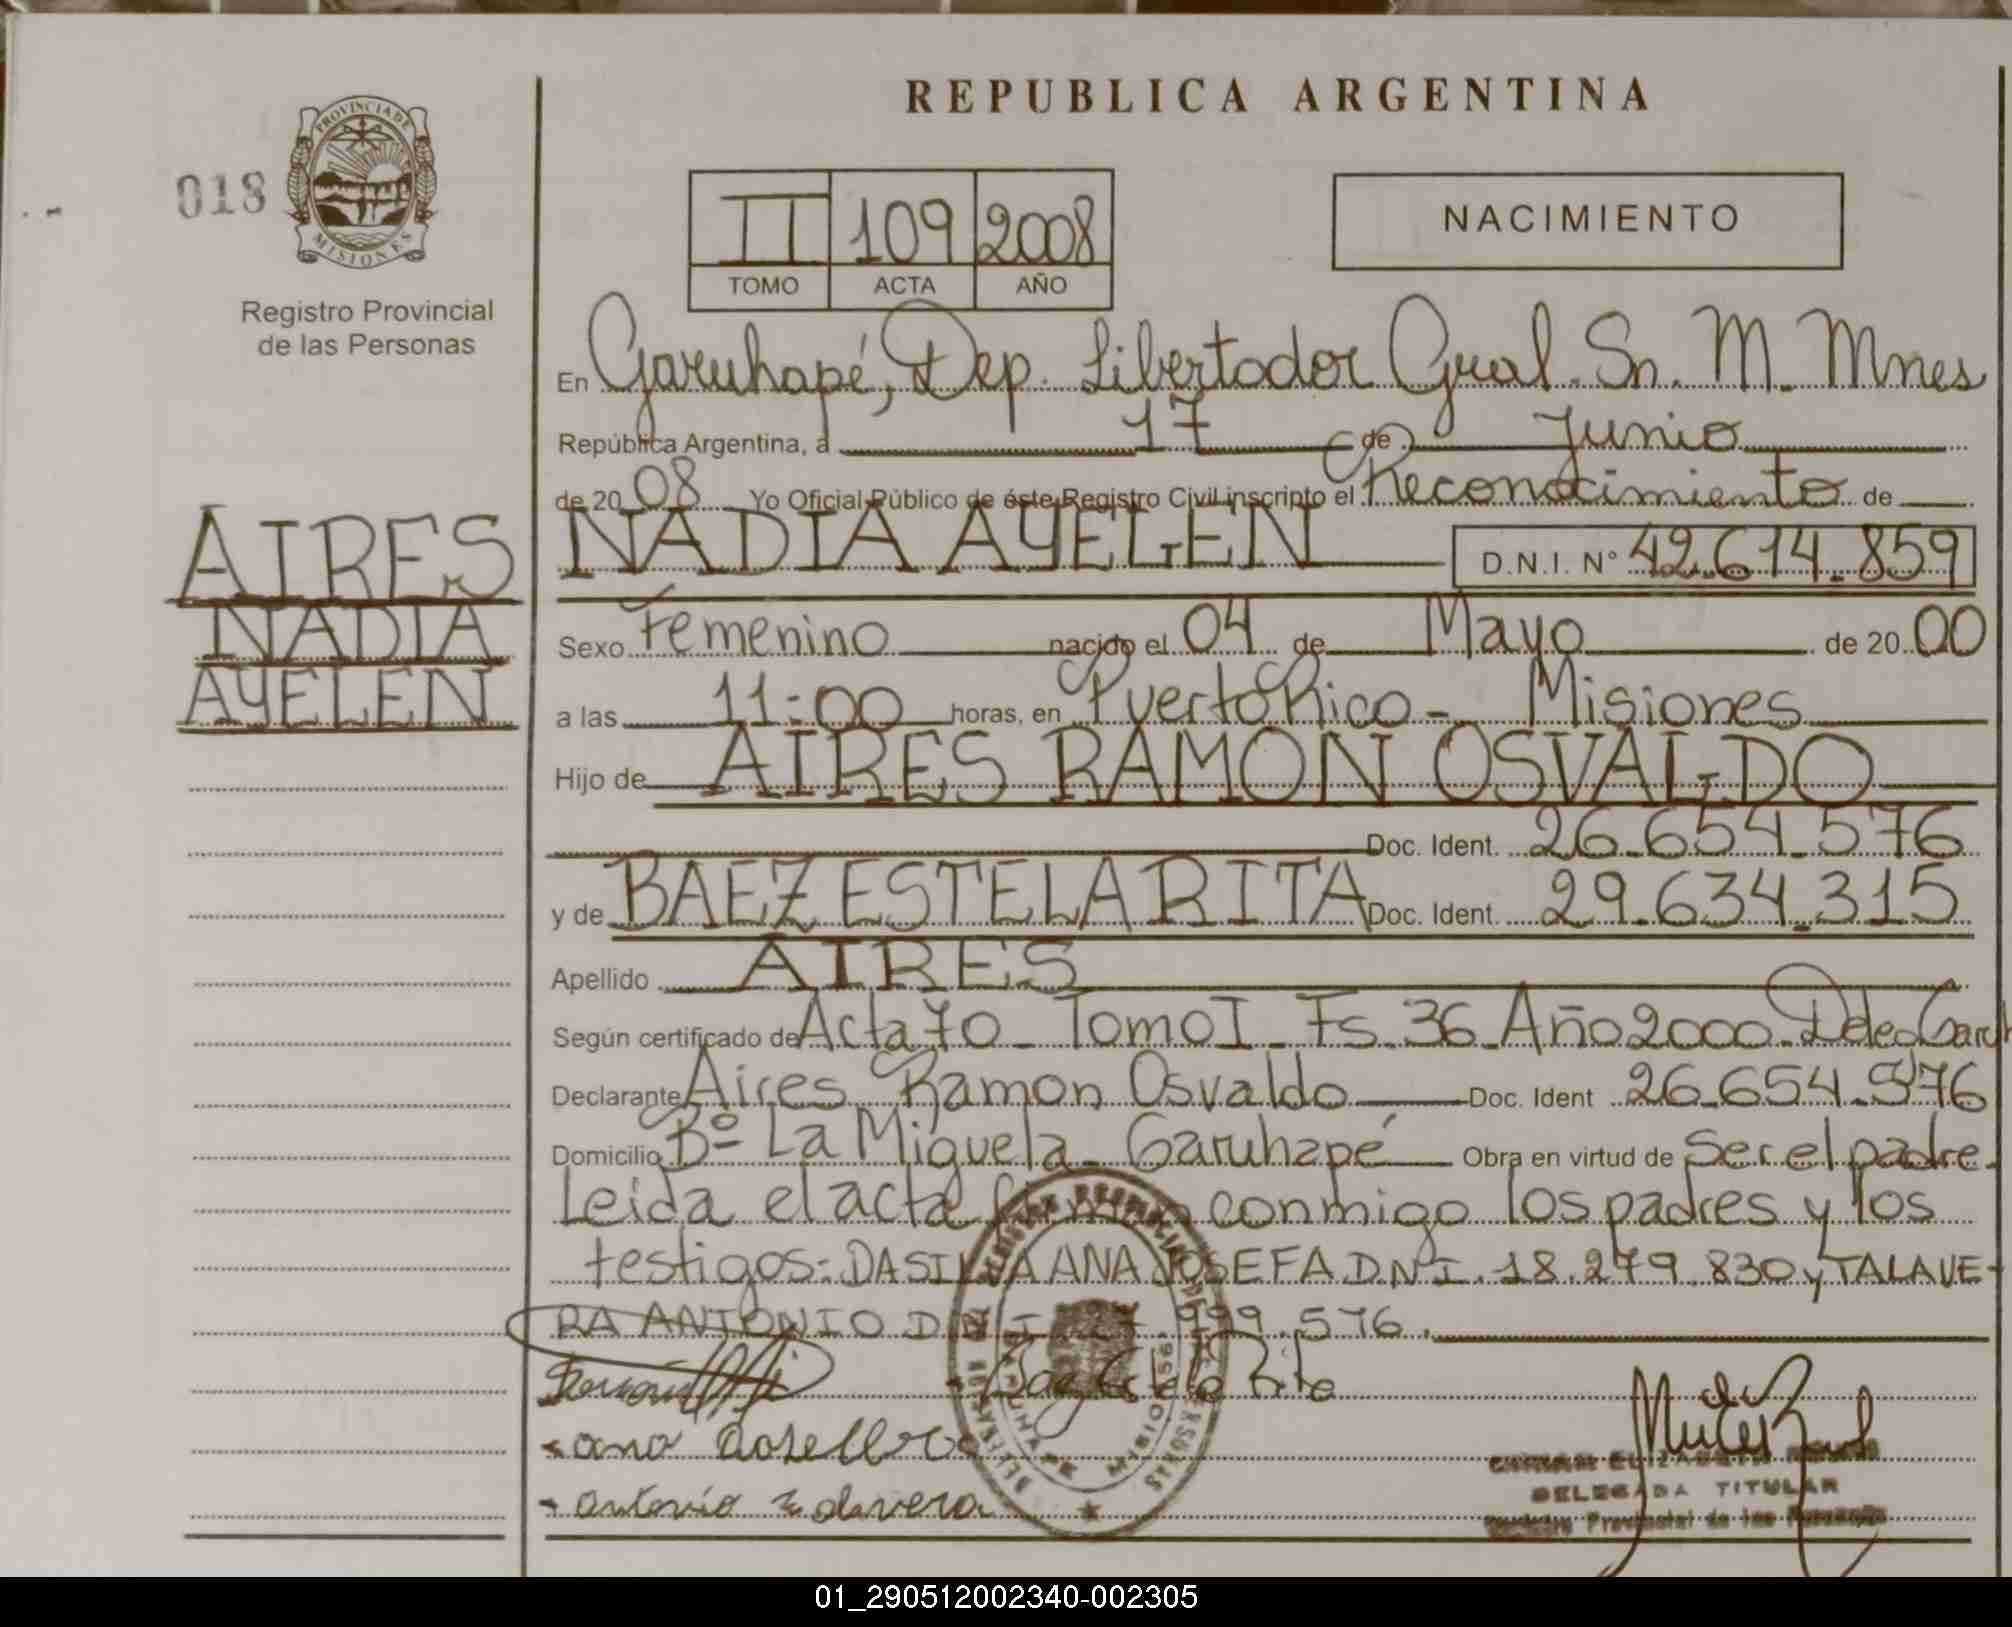 REPUBLICA ARGENTINA
018
PROVINCIA DE
MISIONES
Registro Provincial
de las Personas
II 109 2008
TOMO ACTA AÑO
NACIMIENTO
En Garuhapé, Dep. Libertador Gral. Sn. M. Mnes
República Argentina, a 17 de Junio
de 20 08 Yo Oficial Público de éste Registro Civil inscripto el Reconocimiento de
AIRES
NADIA
AYELEN
NADIA AYELEN D.N.I. Nº 42.614.859
Sexo Femenino nacido el 04 de Mayo de 20 00
a las 11:00 horas, en Puerto Rico - Misiones
Hijo de AIRES RAMON OSVALDO
Doc. Ident. 26.654.576
y de BAEZ ESTELA RITA Doc. Ident. 29.634.315
Apellido AIRES
Según certificado de Acta 70 - Tomo I - Fs. 36 - Año 2000 -
Declarante Aires Ramon Osvaldo Doc. Ident 26.654.576
Domicilio Bº La Miguela - Garuhapé Obra en virtud de Ser el padre.
Leida el acta conmigo los padres y los
testigos: DASILVA ANA JOSEFA D.N.I. 18.279.830 y TALAVE-
RA ANTONIO D.N.I. .999.576.
Rita
- antonio talavera
DELEGADA TITULAR
Registro Provincial de las Personas
01_290512002340-002305